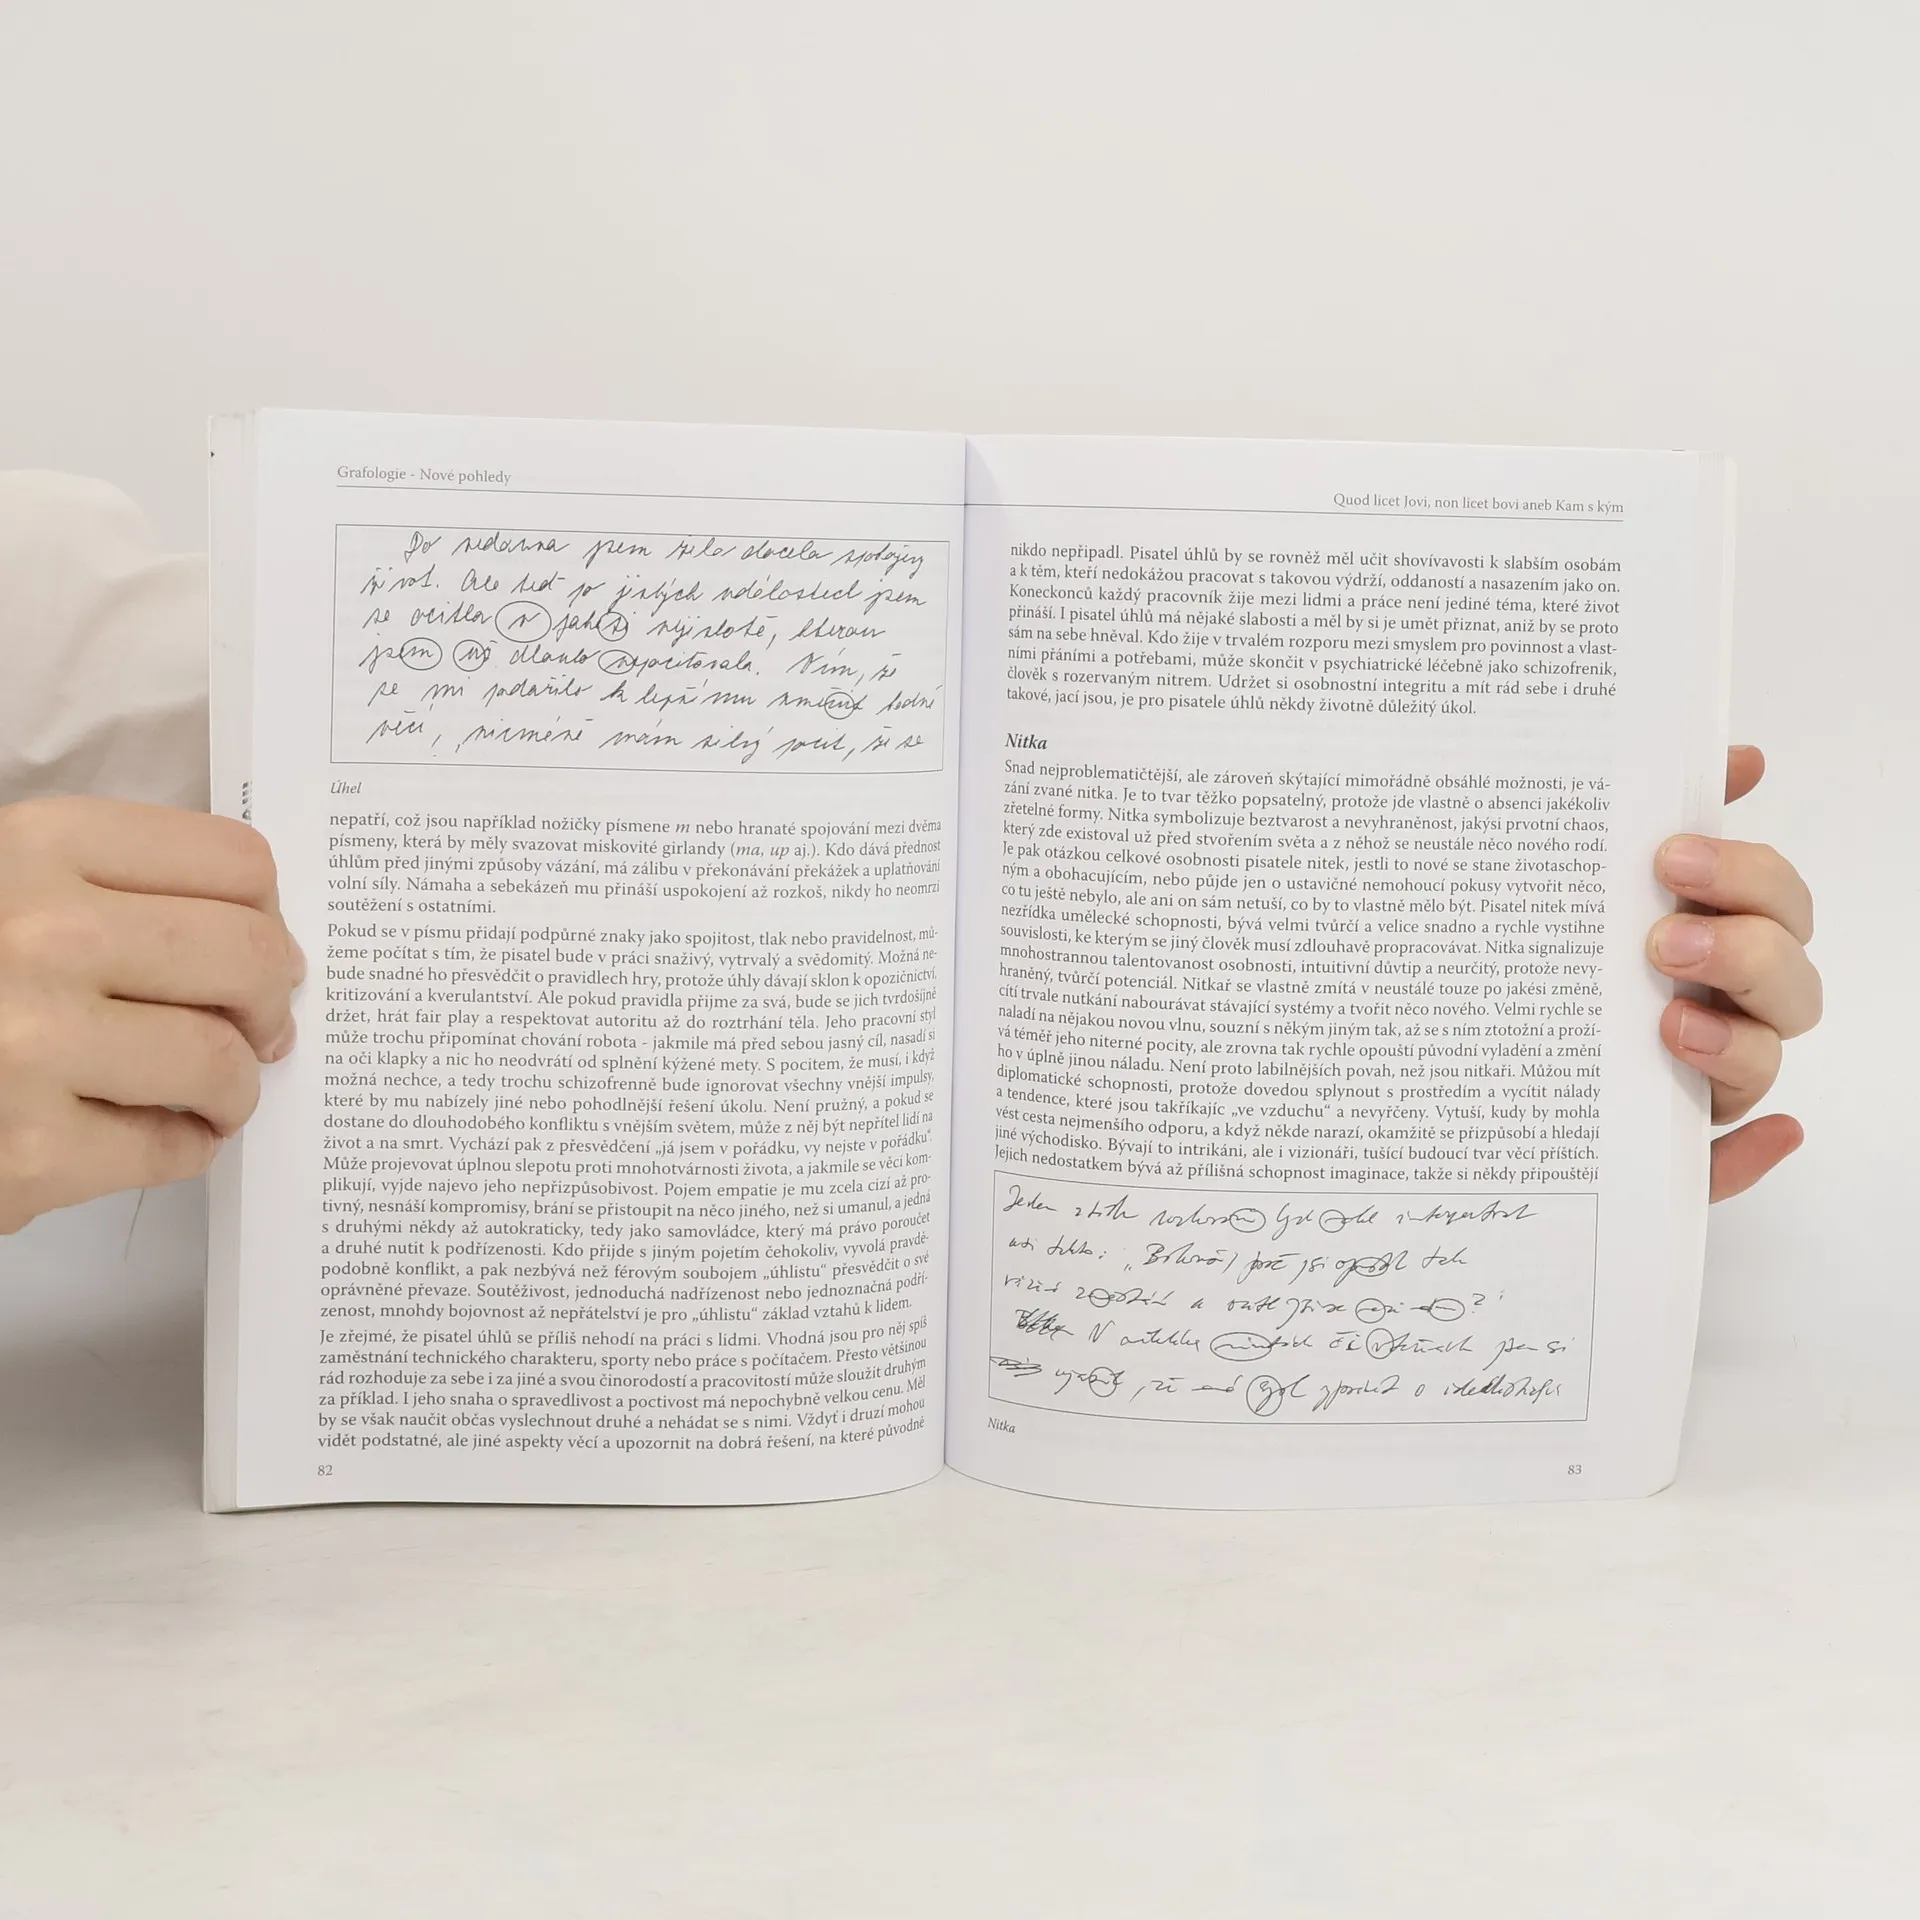 Grafologie - Nové pohledy
Do nedávna jsem žila docela spokojený
život. Ale teď po jistých událostech jsem
se ocitla v jakési nejistotě, kterou
jsem už dlouho nepociťovala. Vím, že
se mi podařilo k lepšímu změnit hodně
věcí, nicméně mám silný pocit, že se
Úhel
nepatří, což jsou například nožičky písmene m nebo hranaté spojování mezi dvěma
písmeny, která by měly svazovat miskovité girlandy (ma, up aj.). Kdo dává přednost
úhlům před jinými způsoby vázání, má zálibu v překonávání překážek a uplatňování
volní síly. Námaha a sebekázeň mu přináší uspokojení až rozkoš, nikdy ho neomrzí
soutěžení s ostatními.
Pokud se v písmu přidají podpůrné znaky jako spojitost, tlak nebo pravidelnost, mů-
žeme počítat s tím, že pisatel bude v práci snaživý, vytrvalý a svědomitý. Možná ne-
bude snadné ho přesvědčit o pravidlech hry, protože úhly dávají sklon k opozičnictví,
kritizování a kverulantství. Ale pokud pravidla přijme za svá, bude se jich tvrdošíjně
držet, hrát fair play a respektovat autoritu až do roztrhání těla. Jeho pracovní styl
může trochu připomínat chování robota - jakmile má před sebou jasný cíl, nasadí si
na oči klapky a nic ho neodvrátí od splnění kýžené mety. S pocitem, že musí, i když
možná nechce, a tedy trochu schizofrenně bude ignorovat všechny vnější impulsy,
které by mu nabízely jiné nebo pohodlnější řešení úkolu. Není pružný, a pokud se
dostane do dlouhodobého konfliktu s vnějším světem, může z něj být nepřítel lidí na
život a na smrt. Vychází pak z přesvědčení „já jsem v pořádku, vy nejste v pořádku“.
Může projevovat úplnou slepotu proti mnohotvárnosti života, a jakmile se věci kom-
plikují, vyjde najevo jeho nepřizpůsobivost. Pojem empatie je mu zcela cizí až pro-
tivný, nesnáší kompromisy, brání se přistoupit na něco jiného, než si umanul, a jedná
s druhými někdy až autokraticky, tedy jako samovládce, který má právo poroučet
a druhé nutit k podřízenosti. Kdo přijde s jiným pojetím čehokoliv, vyvolá pravdě-
podobně konflikt, a pak nezbývá než férovým soubojem „úhlistu“ přesvědčit o své
oprávněné převaze. Soutěživost, jednoduchá nadřízenost nebo jednoznačná podří-
zenost, mnohdy bojovnost až nepřátelství je pro „úhlistu“ základ vztahů k lidem.
Je zřejmé, že pisatel úhlů se příliš nehodí na práci s lidmi. Vhodná jsou pro něj spíš
zaměstnání technického charakteru, sporty nebo práce s počítačem. Přesto většinou
rád rozhoduje za sebe i za jiné a svou činorodostí a pracovitostí může sloužit druhým
za příklad. I jeho snaha o spravedlivost a poctivost má nepochybně velkou cenu. Měl
by se však naučit občas vyslechnout druhé a nehádat se s nimi. Vždyť i druzí mohou
vidět podstatné, ale jiné aspekty věcí a upozornit na dobrá řešení, na které původně
82
Quod licet Jovi, non licet bovi aneb Kam s kým
nikdo nepřipadl. Pisatel úhlů by se rovněž měl učit shovívavosti k slabším osobám
a k těm, kteří nedokážou pracovat s takovou výdrží, oddaností a nasazením jako on.
Koneckonců každý pracovník žije mezi lidmi a práce není jediné téma, které život
přináší. I pisatel úhlů má nějaké slabosti a měl by si je umět přiznat, aniž by se proto
sám na sebe hněval. Kdo žije v trvalém rozporu mezi smyslem pro povinnost a vlast-
ními přáními a potřebami, může skončit v psychiatrické léčebně jako schizofrenik,
člověk s rozervaným nitrem. Udržet si osobnostní integritu a mít rád sebe i druhé
takové, jací jsou, je pro pisatele úhlů někdy životně důležitý úkol.
Nitka
Snad nejproblematičtější, ale zároveň skýtající mimořádně obsáhlé možnosti, je vá-
zání zvané nitka. Je to tvar těžko popsatelný, protože jde vlastně o absenci jakékoliv
zřetelné formy. Nitka symbolizuje beztvarost a nevyhraněnost, jakýsi prvotní chaos,
který zde existoval už před stvořením světa a z něhož se neustále něco nového rodí.
Je pak otázkou celkové osobnosti pisatele nitek, jestli to nové se stane životaschop-
ným a obohacujícím, nebo půjde jen o ustavičné nemohoucí pokusy vytvořit něco,
co tu ještě nebylo, ale ani on sám netuší, co by to vlastně mělo být. Pisatel nitek mívá
nezřídka umělecké schopnosti, bývá velmi tvůrčí a velice snadno a rychle vystihne
souvislosti, ke kterým se jiný člověk musí zdlouhavě propracovávat. Nitka signalizuje
mnohostrannou talentovanost osobnosti, intuitivní důvtip a neurčitý, protože nevy-
hraněný, tvůrčí potenciál. Nitkař se vlastně zmítá v neustálé touze po jakési změně,
cítí trvale nutkání nabourávat stávající systémy a tvořit něco nového. Velmi rychle se
naladí na nějakou novou vlnu, souzní s někým jiným tak, až se s ním ztotožní a proží-
vá téměř jeho niterné pocity, ale zrovna tak rychle opouští původní vyladění a změní
ho v úplně jinou náladu. Není proto labilnějších povah, než jsou nitkaři. Můžou mít
diplomatické schopnosti, protože dovedou splynout s prostředím a vycítit nálady
a tendence, které jsou takříkajíc „ve vzduchu“ a nevyřčeny. Vytuší, kudy by mohla
vést cesta nejmenšího odporu, a když někde narazí, okamžitě se přizpůsobí a hledají
jiné východisko. Bývají to intrikáni, ale i vizionáři, tušící budoucí tvar věcí příštích.
Jejich nedostatkem bývá až přílišná schopnost imaginace, takže si někdy připouštějí
Jeden z
asi takto: proč jsi tak
a
V či jsem si
ujasnil, že o
Nitka
83